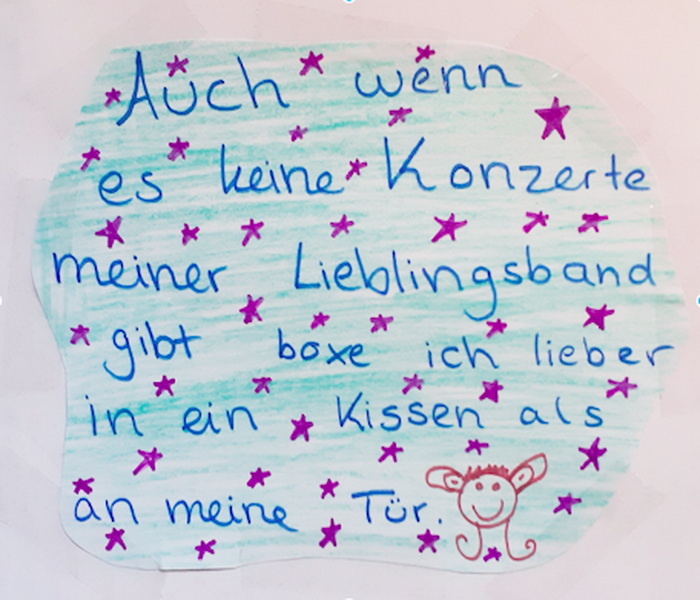 Auch wenn
es keine Konzerte
meiner Lieblingsband
gibt boxe ich lieber
in ein Kissen als
an meine Tür.